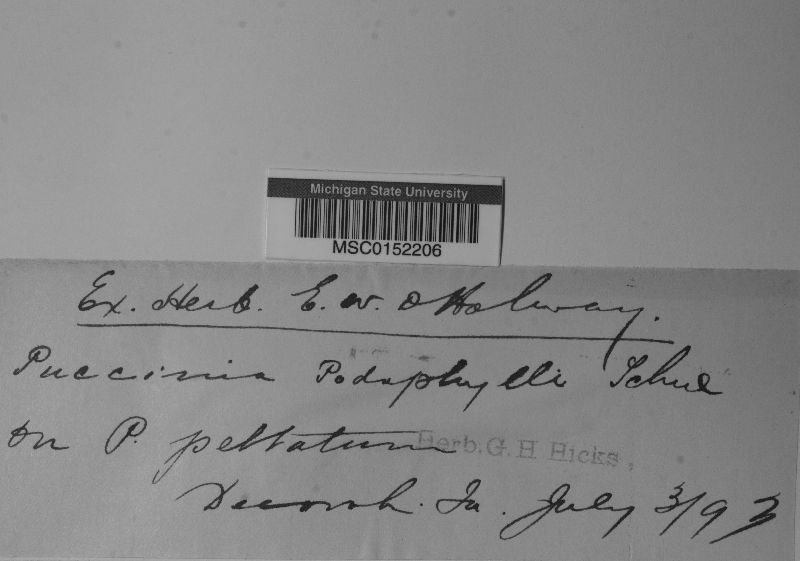 Michigan State University
MSC0152206
Ex. Herb. E. W. D Holway.
Puccinia Podophylli Schw
on P. peltatum
Herb. G. H Hicks,
Decorah. Ia. July 3/93